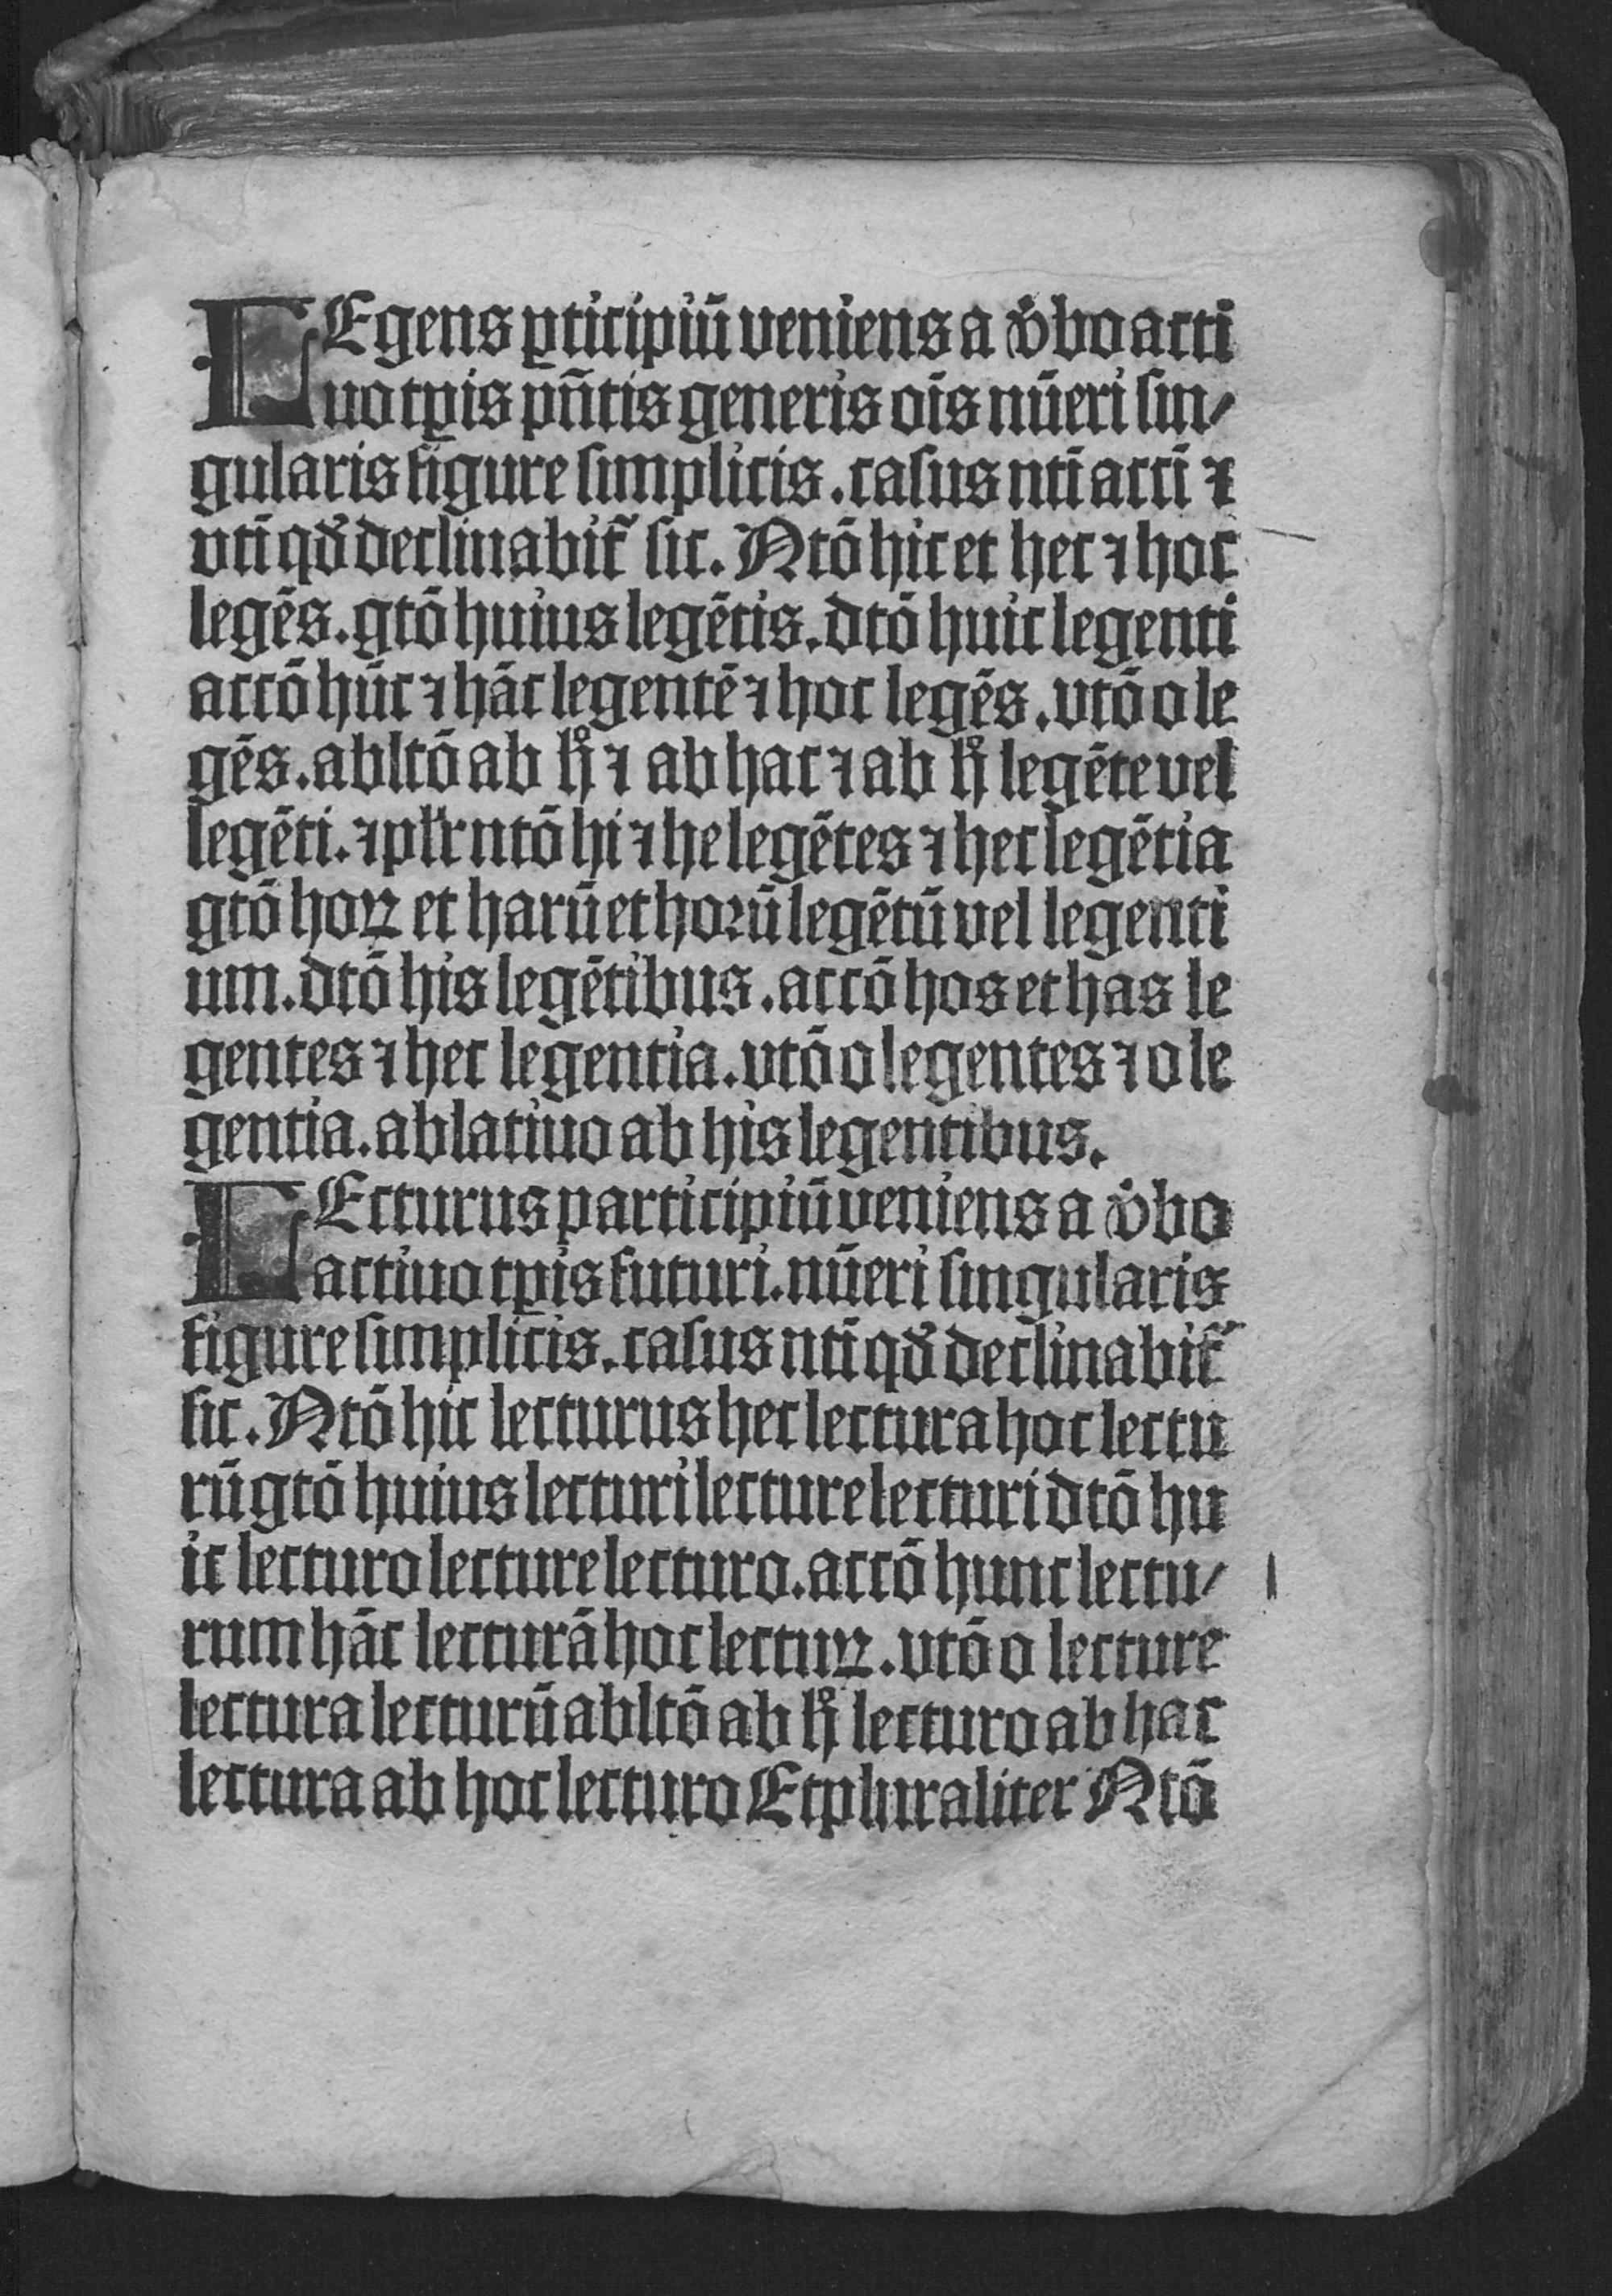 LEgens ꝑticipiū veniens a v̊bo acti
uo tꝑis pñtis generis oīs nūeri ſin/
gularis figure ſimplicis. caſus ntī acti ⁊
vtī qď declinabit᷑ ſic. Ntō hic et hec ⁊ hoc
legēs. gtō huius legētis. dtō huic legenti
actō hūc ⁊ hāc legentē ⁊ hoc legēs. vtō o le
gēs. abltō ab h̊ ⁊ ab hac ⁊ ab h̊ legēte vel
legēti. ⁊ pl̄r ntō hi ⁊ he legētes ⁊ hec legētia
gtō hoꝝ et harū et horū legētū vel legenti
um. dtō his legētibus. actō hos et has le
gentes ⁊ hec legentia. vtō o legentes ⁊ o le
gentia. ablatiuo ab his legentibus.
LEcturus participiū veniens a v̊bo
actiuo tꝑis futuri. nūeri ſingularis
figure ſimplicis. caſus ntī qď declinabit᷑
ſic. Ntō hic lecturus hec lectura hoc lectu
rū gtō huius lecturi lecture lecturi dtō hu
ic lecturo lecture lecturo. actō hunc lectu/
rum hāc lecturā hoc lectuꝝ. vtō o lecture
lectura lecturū abltō ab h̊ lecturo ab hac
lectura ab hoc lecturo Et pluraliter Ntō